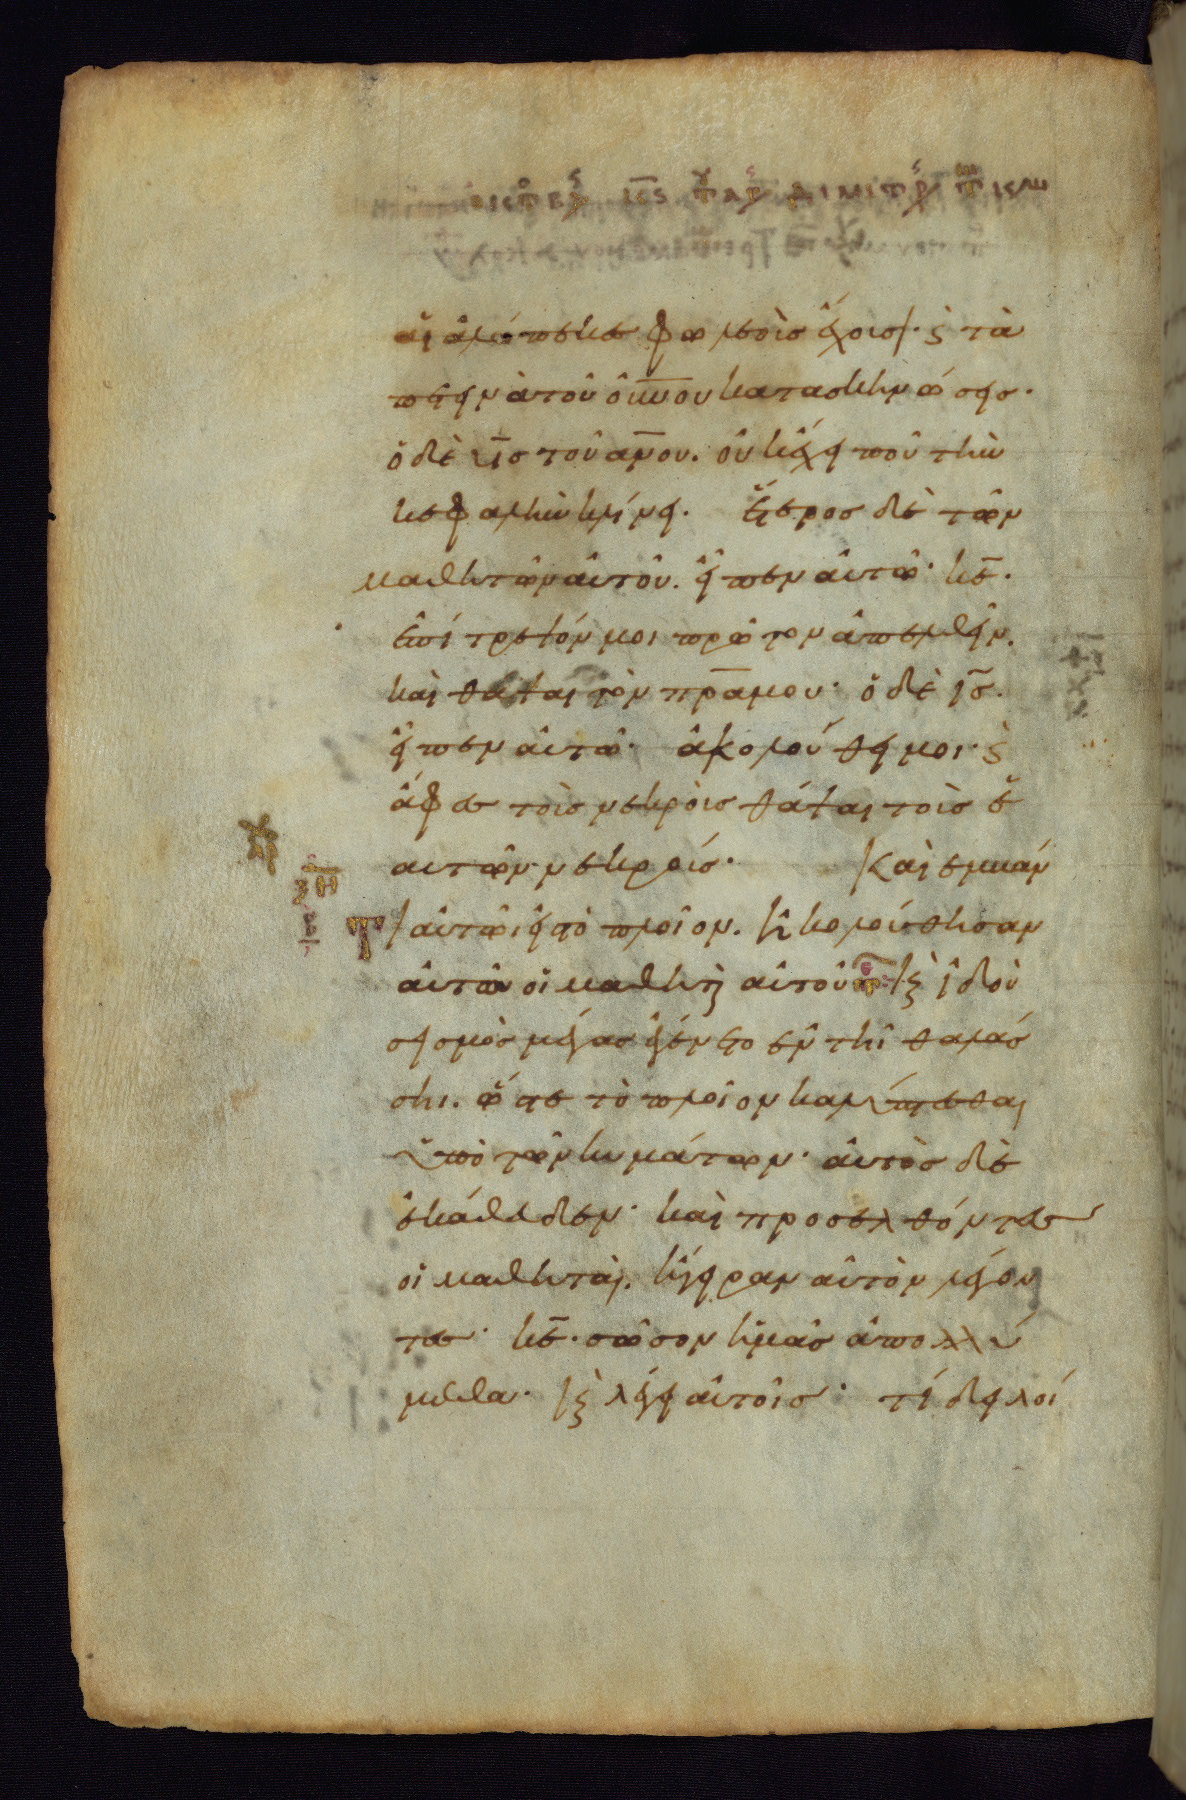 αἱ ἀλώπεκες φωλεοὺς ἔχουσι· ϛ τὰ
πετεινὰ τοῦ οὐ̅ν̅ο̅υ κατασκηνώσεις·
ὁ δὲ υ̅ς̅ τοῦ α̅ν̅ο̅υ. οὐκ ἔχει ποῦ τὴν
κεφαλὴν κλίνει. ἕτερος δὲ τῶν
μαθητῶν αὐτοῦ. εἶπεν αὐτῶ· κ̅ε̅.
ἐπίτρεψόν μοι πρῶτον ἀπελθεῖν.
καὶ θάψαι τὸν π̅ρ̅α̅ μου· ὁ δὲ ι̅ς̅.
εἶπεν αὐτῶ· ἀκολούθει μοι· ϛ
ἄφες τοὺς νεκροὺς θάψαι τοὺς ἑ
αυτῶν νεκρούς. Καὶ ἐμβάν
Τ/ αὐτῶι εἰς τὸ πλοῖον. ἠκολούθησαν
αὐτῶ οἱ μαθηταὶ αὐτοῦ καὶ ἰδοὺ
σεισμὸς μέγας ἐγένετο ἐν τῆι θαλάσ
σηι. ὥστε τὸ πλοῖον καλύπτεσθαι
ὑπὸ τῶν κυμάτων· αὐτὸς δὲ
ἐκάθευδεν· καὶ προσελθόντες
οἱ μαθηταὶ. ἤγειραν αὐτὸν λέγον
τες· κ̅ε̅. σῶσον ἡμᾶς ἀπολλύ
μεθα· καὶ λέγει αὐτοῖς· τί δειλοί